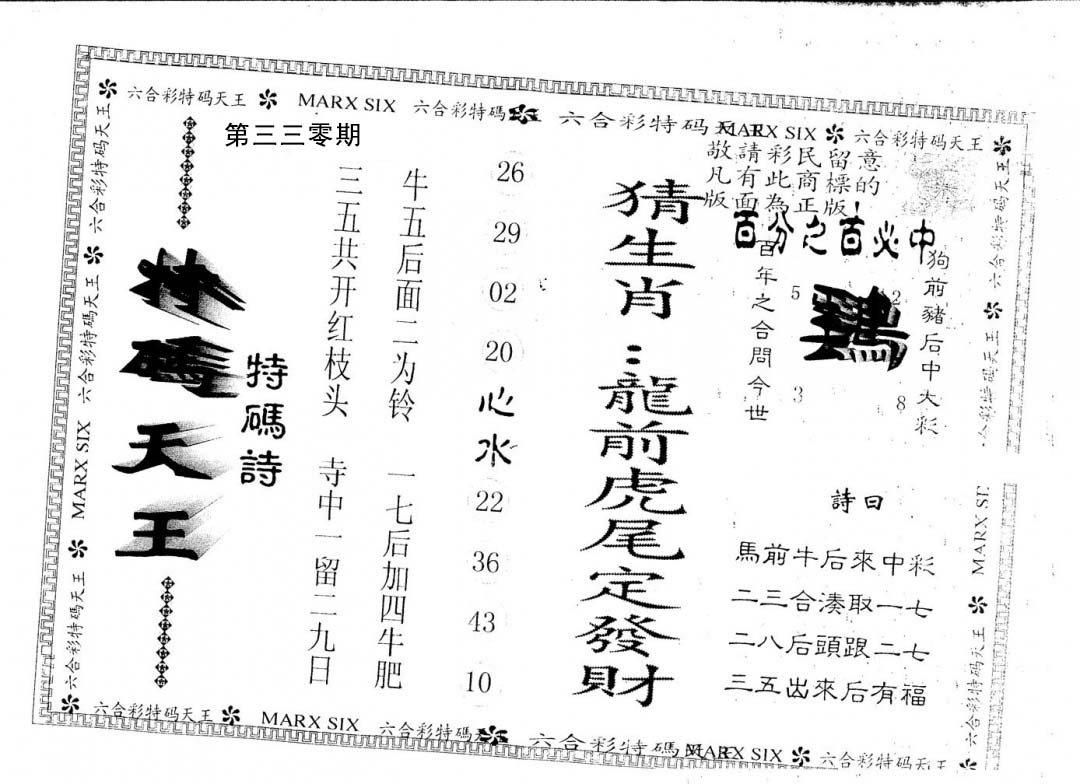 六合彩特码天王 MARX SIX 六合彩特碼 六合彩特码天王 MARX SIX 六合彩特码天王
第三三零期
敬請彩民留意
凡有此商標的
版面為正版!
百分之百必中
狗前豬后中大彩
百年之合問今世
5
2
3
8
猜生肖:龍前虎尾定發財
26
29
02
20
心水
22
36
43
10
牛五后面二为铃 一七后加四牛肥
三五共开红枝头 寺中一留二九日
特碼詩
特碼天王
詩曰
馬前牛后來中彩
二三合湊取一七
二八后頭跟二七
三五出來后有福
六合彩特码天王
六合彩特码天王
MARX SIX
六合彩特码天王
六合彩特码天王
六合彩特码天王
MARX SIX
六合彩特码天王
六合彩特码天王 MARX SIX 六合彩特碼 六合彩特碼 MARX SIX 六合彩特码天王